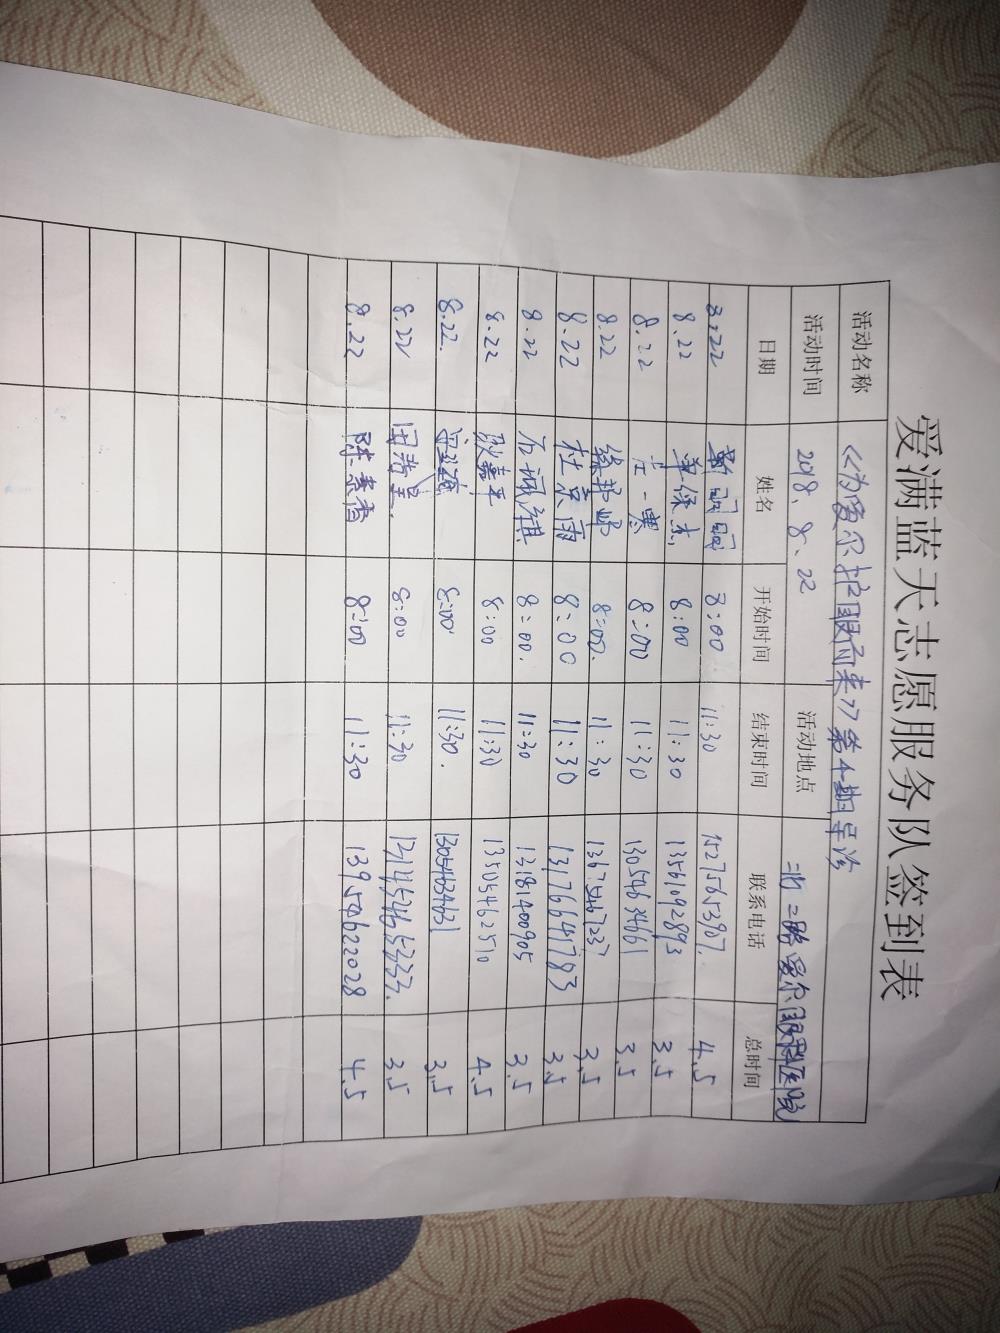 爱满蓝天志愿服务队签到表
活动名称 《为爱尔护眼而来》第4期导诊
活动时间 2018、8、22 活动地点 北二路爱尔眼科医院
日期 姓名 开始时间 结束时间 联系电话 总时间
8.22 8:00 11:30 15275653907. 4.5
8.22 8:00 11:30 13561092893 3.5
8.22 8:00 11:30 13054634661 3.5
8.22 8:00. 11:30 13675467237 3.5
8.22 杜京雨 8:00 11:30 13176641783 3.5
8.22 8:00. 11:30 13181400905 3.5
8.22 耿嘉平 8:00 11:30 13505462510 4.5
8.22. 8:00 11:30. 13054634631 3.5
8.22 8:00 11:30 3.5
8.22 陈素香 8:00 11:30 13954622028 4.5